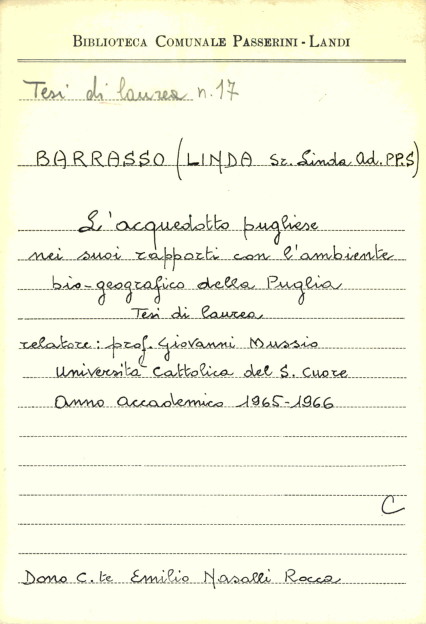 BIBLIOTECA COMUNALE PASSERINI - LANDI
Tesi di laurea n. 17
BARRASSO (LINDA Sr. Linda Ad. PP.S)
L'acquedotto pugliese
nei suoi rapporti con l'ambiente
bio-geografico della Puglia
Tesi di laurea
relatore: prof. Giovanni Mussio
Università Cattolica del S. Cuore
Anno accademico 1965-1966
C
Dono C.te Emilio Nasalli Rocca